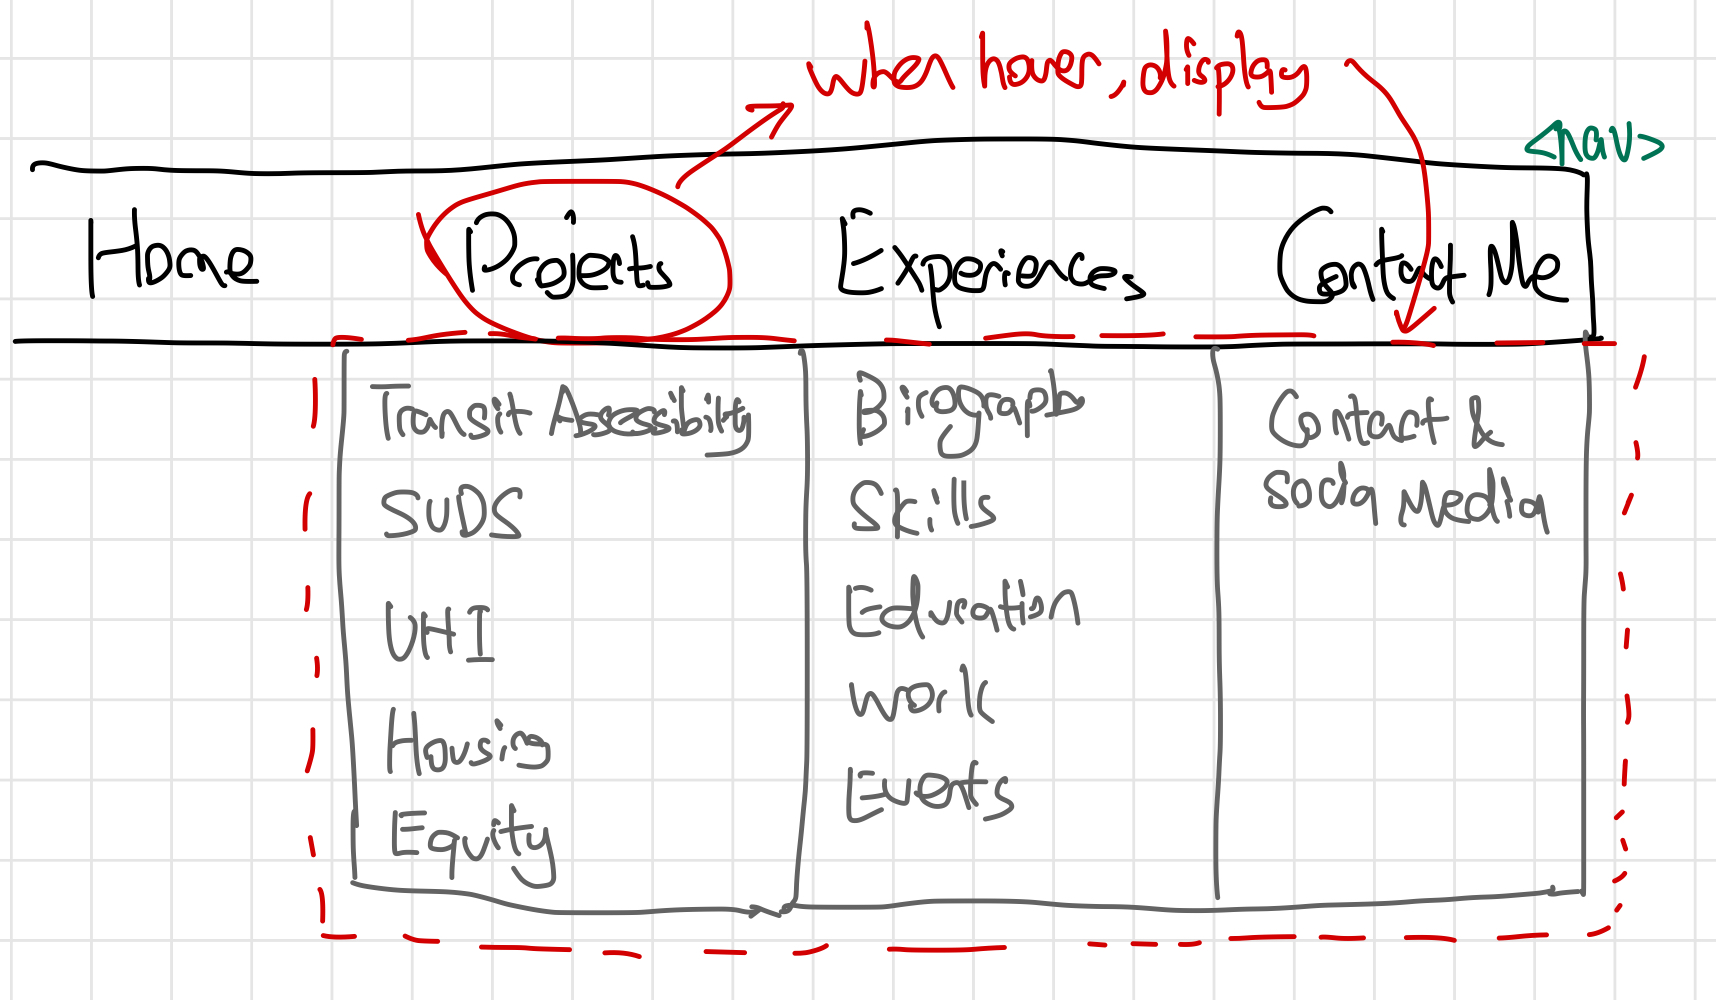 when hover, display
<nav>
Home Projects Experiences Contact Me
Transit Assessibilty
SUDS
UHI
Housing
Equity
Birograph
Skills
Education
Work
Events
Contact &
Social Media